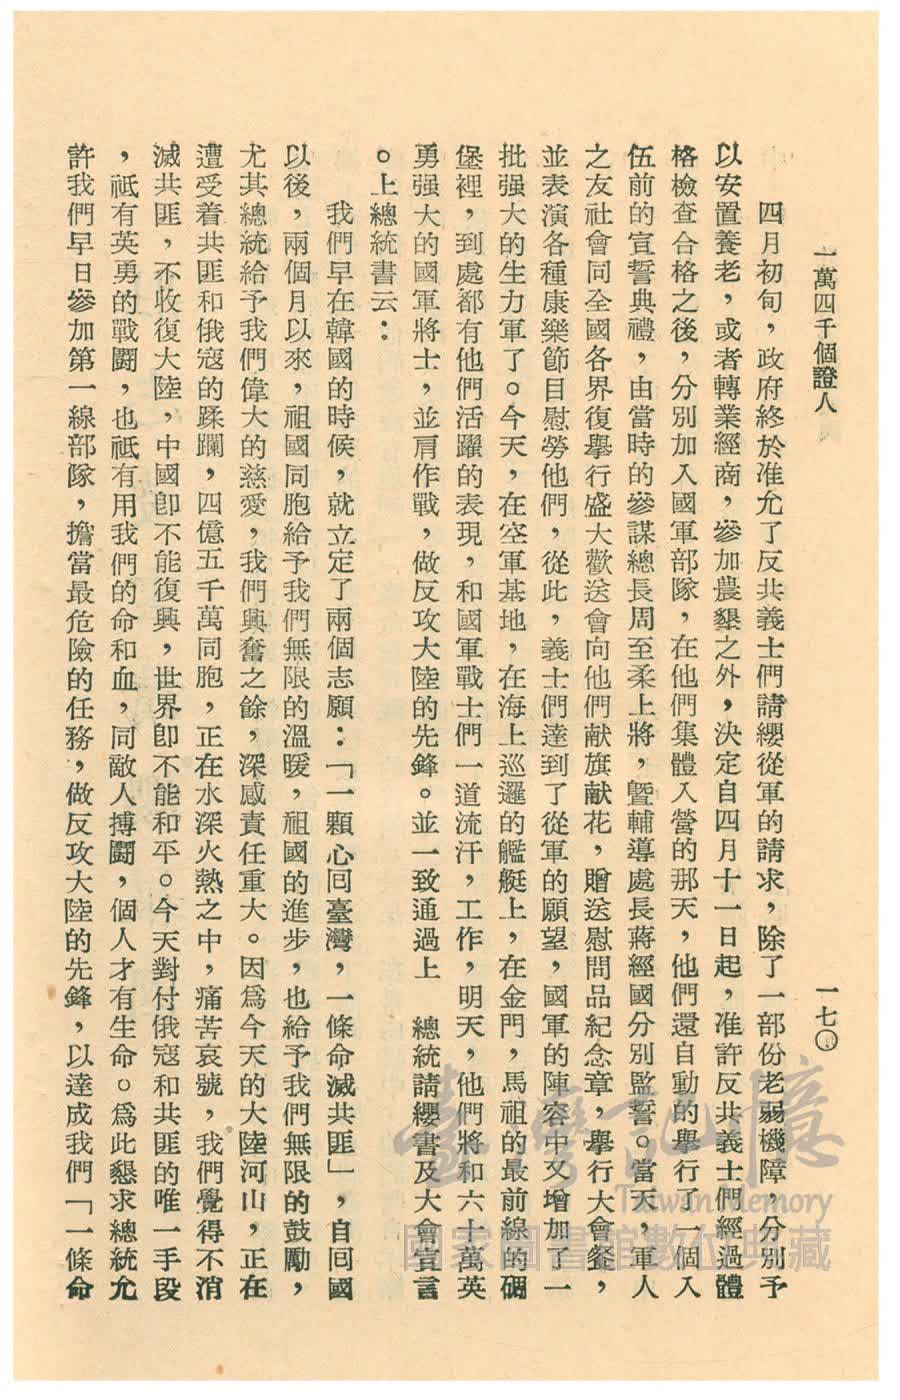 一萬四千個證人
一七〇
四月初旬，政府終於准允了反共義士們請纓從軍的請求，除了一部份老弱機障，分別予
以安置養老，或者轉業經商，參加農墾之外，決定自四月十一日起，准許反共義士們經過體
格檢查合格之後，分別加入國軍部隊，在他們集體入營的那天，他們還自動的舉行了一個入
伍前的宣誓典禮，由當時的參謀總長周至柔上將，曁輔導處長蔣經國分別監誓。當天，軍人
之友社會同全國各界復擧行盛大歡送會向他們献旗献花，贈送慰問品紀念章，擧行大會餐，
並表演各種康樂節目慰勞他們，從此，義士們達到了從軍的願望，國軍的陣容中又增加了一
批强大的生力軍了。今天，在空軍基地，在海上巡邏的艦艇上，在金門，馬祖的最前線的碉
堡裡，到處都有他們活躍的表現，和國軍戰士們一道流汗，工作，明天，他們將和六十萬英
勇强大的國軍將士，並肩作戰，做反攻大陸的先鋒。並一致通過上　總統請纓書及大會宣言
。上總統書云：
我們早在韓國的時候，就立定了兩個志願：「一顆心囘臺灣，一條命滅共匪」，自囘國
以後，兩個月以來，祖國同胞給予我們無限的溫暖，祖國的進步，也給予我們無限的鼓勵，
尤其總統給予我們偉大的慈愛，我們興奮之餘，深感責任重大。因爲今天的大陸河山，正在
遭受着共匪和俄寇的蹂躪，四億五千萬同胞，正在水深火熱之中，痛苦哀號，我們覺得不消
滅共匪，不收復大陸，中國卽不能復興，世界卽不能和平。今天對付俄寇和共匪的唯一手段
，祗有英勇的戰鬪，也祗有用我們的命和血，同敵人搏鬪，個人才有生命。爲此懇求總統允
許我們早日參加第一線部隊，擔當最危險的任務，做反攻大陸的先鋒，以達成我們「一條命
臺灣記憶
Taiwan Memory
國家圖書館數位典藏